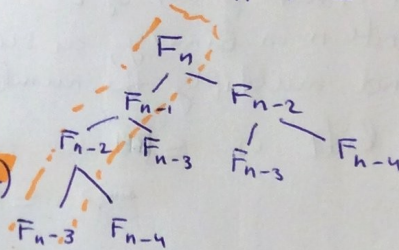 Fn
Fn-1 Fn-2
Fn-2 Fn-3 Fn-3 Fn-4
)
Fn-3 Fn-4